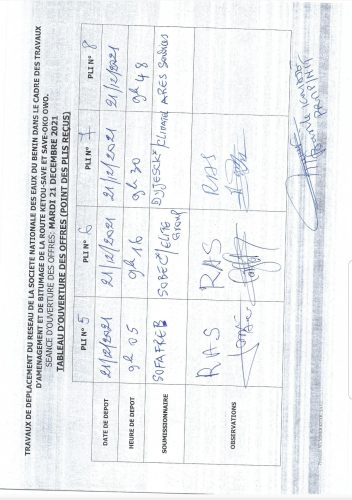 TRAVAUX DE DEPLACEMENT DU RESEAU DE LA SOCIETE NATIONALE DES EAUX DU BENIN DANS LE CADRE DES TRAVAUX
D'AMENAGEMENT ET DE BITUMAGE DE LA ROUTE KETOU-SAVE ET SAVE-OKO OWO.
SEANCE D'OUVERTURE DES OFFRES: MARDI 21 DECEMBRE 2021
TABLEAU D'OUVERTURE DES OFFRES (POINT DES PLIS REÇUS)
PLI N° 5 PLI N° 6 PLI N° 7 PLI N° 8
DATE DE DEPOT 21/12/2021 21/12/2021 21/12/2021 21/12/2021
HEURE DE DEPOT 9h 05 9h 16 9h 30 9h 48
SOUMISSIONNAIRE SOFATREB SOBEC/ELITE GROUP
OBSERVATIONS RAS RAS RAS